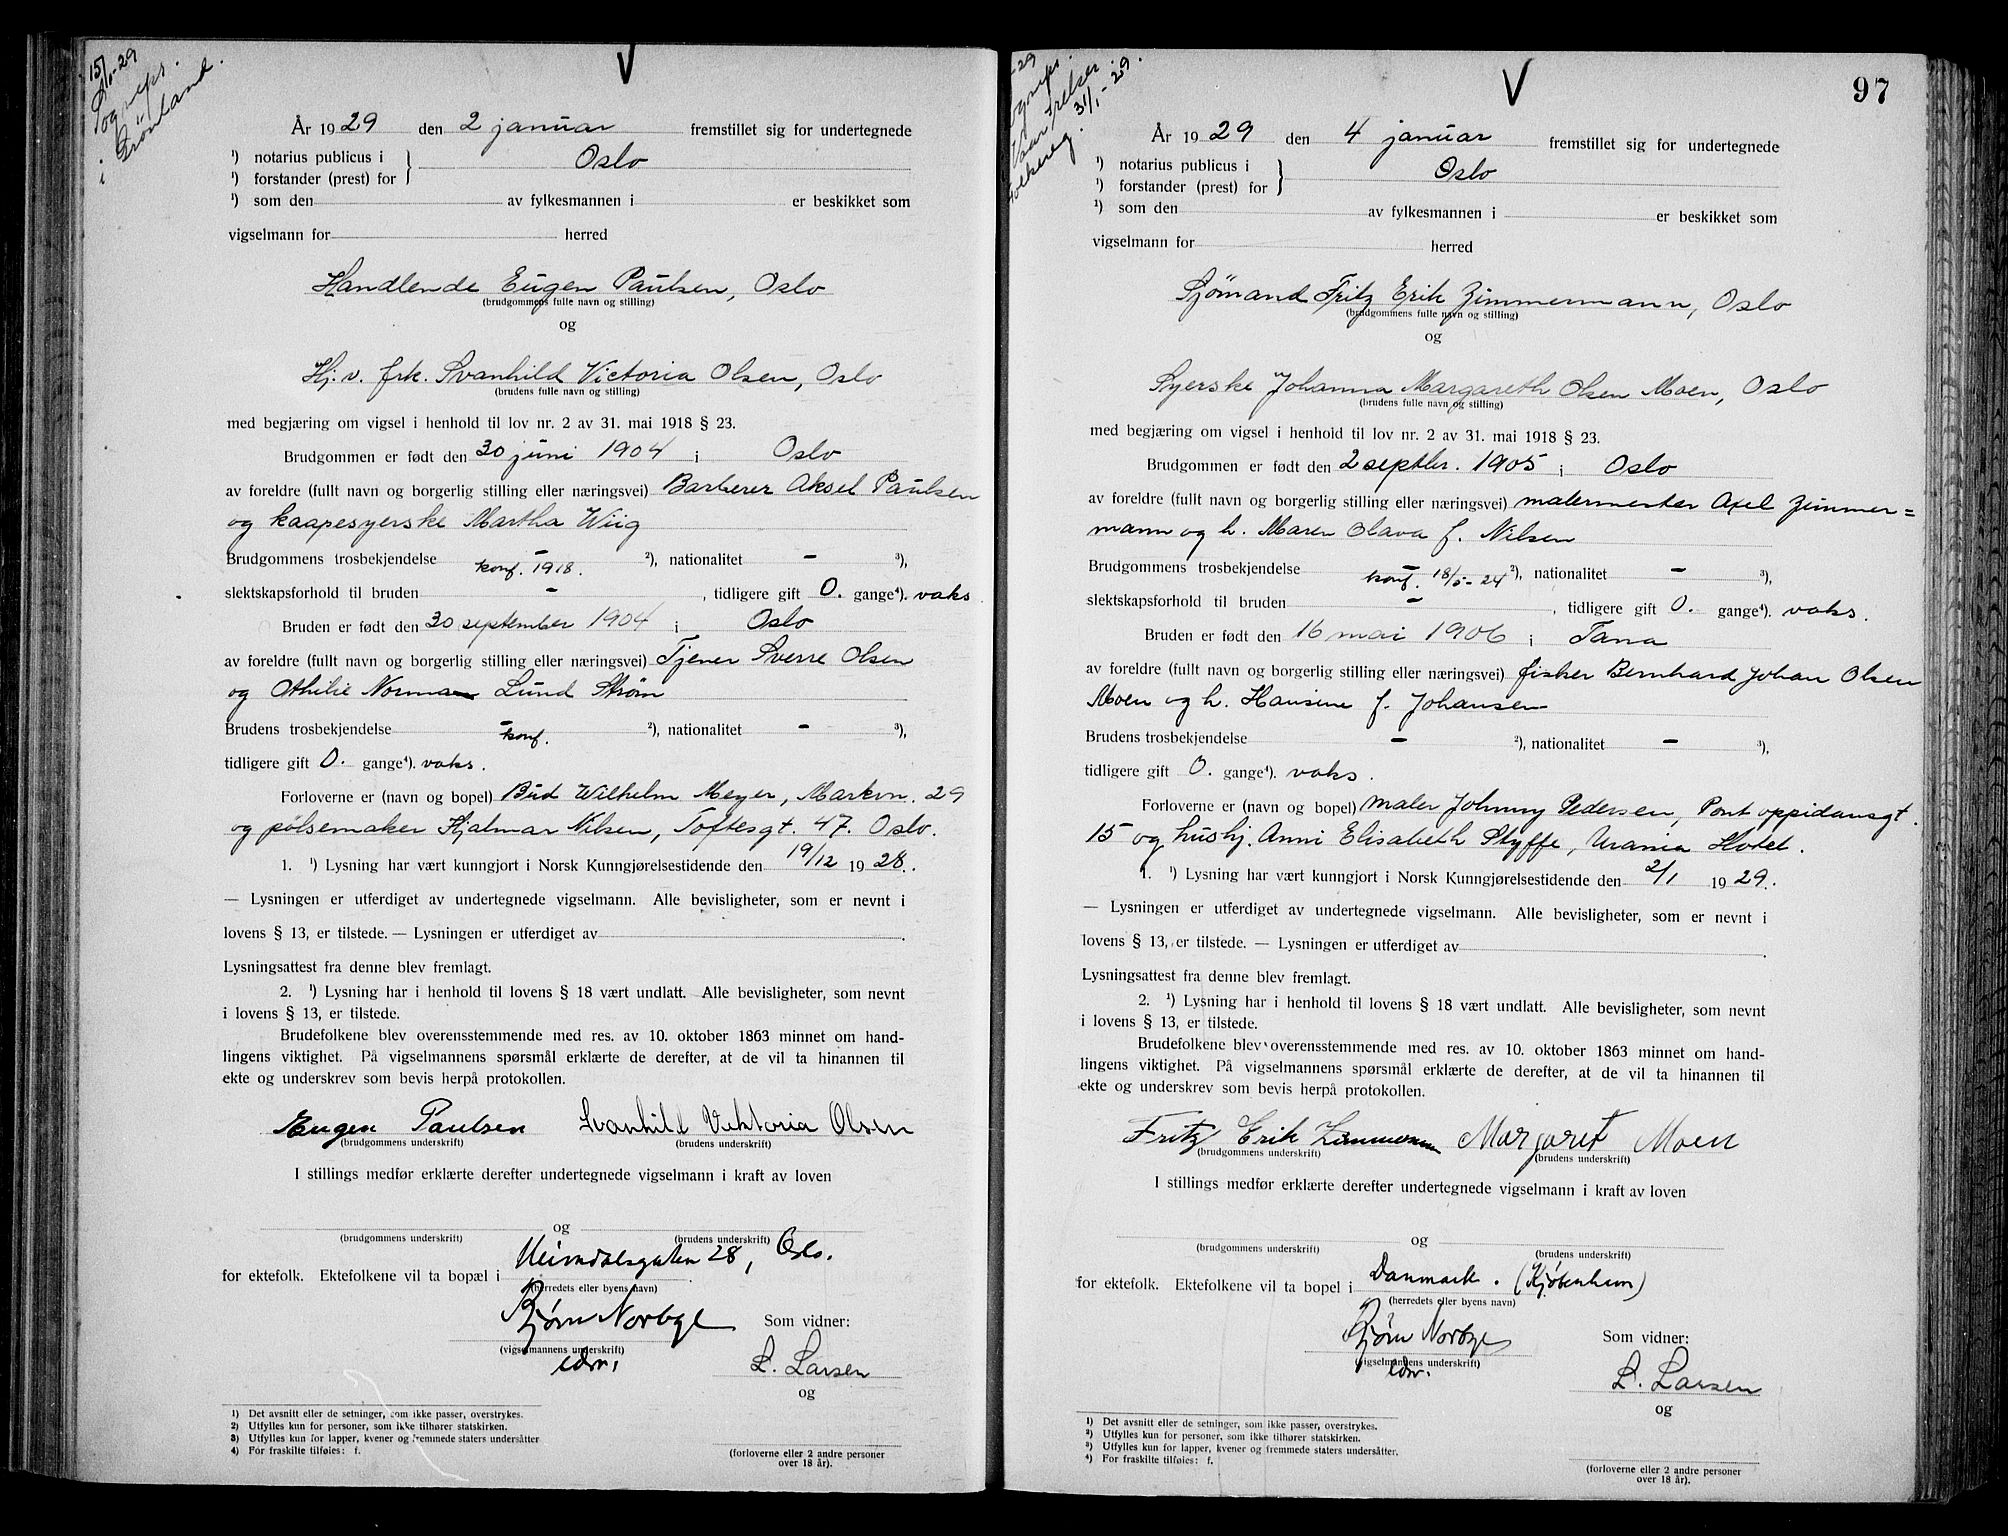 15/1-29
Sogneps.
i Grønland.
V
År 1929 den 2 januar fremstillet sig for undertegnede
¹) notarius publicus i
¹) forstander (prest) for } Oslo
¹) som den av fylkesmannen i er beskikket som
vigselmann for herred
Handlende Eugen Paulsen, Oslo
(brudgommens fulle navn og stilling)
og
Hj.v. frk. Svanhild Victoria Olsen, Oslo
(brudens fulle navn og stilling)
med begjæring om vigsel i henhold til lov nr. 2 av 31. mai 1918 § 23.
Brudgommen er født den 30 juni 1904 i Oslo
av foreldre (fullt navn og borgerlig stilling eller næringsvei) Barberer Aksel Paulsen
og kaapesyerske Martha Wiig
Brudgommens trosbekjendelse – konf. 1918. ²), nationalitet – ³),
slektskapsforhold til bruden –, tidligere gift 0. gange⁴). vaks
Bruden er født den 30 september 1904 i Oslo
av foreldre (fullt navn og borgerlig stilling eller næringsvei) Tjener Sverre Olsen
og Othilie Norma Lund Strøm
Brudens trosbekjendelse – konf. ²), nationalitet – ³),
tidligere gift 0. gange⁴). vaks.
Forloverne er (navn og bopel) Bud Wilhelm Meyer, Markvn. 29
og pølsemaker Hjalmar Nilsen, Toftesgt. 47. Oslo.
1. ¹) Lysning har vært kunngjort i Norsk Kunngjørelsestidende den 19/12 1928.
— Lysningen er utferdiget av undertegnede vigselmann. Alle bevisligheter, som er nevnt i
lovens § 13, er tilstede. — Lysningen er utferdiget av
Lysningsattest fra denne blev fremlagt.
2. ¹) Lysning har i henhold til lovens § 18 vært undlatt. Alle bevisligheter, som nevnt
i lovens § 13, er tilstede.
Brudefolkene blev overensstemmende med res. av 10. oktober 1863 minnet om hand-
lingens viktighet. På vigselmannens spørsmål erklærte de derefter, at de vil ta hinannen til
ekte og underskrev som bevis herpå protokollen.
Eugen Paulsen Svanhild Viktoria Olsen
(brudgommens underskrift) (brudens underskrift)
I stillings medfør erklærte derefter undertegnede vigselmann i kraft av loven
og
(brudgommens underskrift) (brudens underskrift)
for ektefolk. Ektefolkene vil ta bopæl i Heimdalsgaten 28, Oslo.
(herredets eller byens navn)
Bjørn Norbye Som vidner:
(vigselmannens underskrift)
edsv. L. Larsen
og
1) Det avsnitt eller de setninger, som ikke passer, overstrykes.
2) Utfylles kun for personer, som ikke tilhører statskirken.
3) Utfylles kun for lapper, kvener og fremmede staters undersåtter
4) For fraskilte tilføies: f.
(forloverne eller 2 andre personer
over 18 år).
31/1-29.
V
97
År 1929 den 4 januar fremstillet sig for undertegnede
¹) notarius publicus i
¹) forstander (prest) for } Oslo
¹) som den av fylkesmannen i er beskikket som
vigselmann for herred
Sjømand Fritz Erik Zimmermann, Oslo
(brudgommens fulle navn og stilling)
og
Syerske Johanna Margareth Olsen Moen, Oslo
(brudens fulle navn og stilling)
med begjæring om vigsel i henhold til lov nr. 2 av 31. mai 1918 § 23.
Brudgommen er født den 2 septbr. 1905 i Oslo
av foreldre (fullt navn og borgerlig stilling eller næringsvei) malermester Axel Zimmer=
mann og h. Maren Olava f. Nilsen
Brudgommens trosbekjendelse konf. 18/5-24 ²), nationalitet – ³),
slektskapsforhold til bruden –, tidligere gift 0. gange⁴). vaks.
Bruden er født den 16 mai 1906 i Tana
av foreldre (fullt navn og borgerlig stilling eller næringsvei) fisker Bernhard Johan Olsen
Moen og h. Hansine f. Johansen
Brudens trosbekjendelse – ²), nationalitet – ³),
tidligere gift 0. gange⁴). vaks.
Forloverne er (navn og bopel) maler Johnny Pedersen, Pontoppidansgt.
15 og hushj. Anni Elisabeth Styffe, Urania Hotel.
1. ¹) Lysning har vært kunngjort i Norsk Kunngjørelsestidende den 2/1 1929.
— Lysningen er utferdiget av undertegnede vigselmann. Alle bevisligheter, som er nevnt i
lovens § 13, er tilstede. — Lysningen er utferdiget av
Lysningsattest fra denne blev fremlagt.
2. ¹) Lysning har i henhold til lovens § 18 vært undlatt. Alle bevisligheter, som nevnt
i lovens § 13, er tilstede.
Brudefolkene blev overensstemmende med res. av 10. oktober 1863 minnet om hand-
lingens viktighet. På vigselmannens spørsmål erklærte de derefter, at de vil ta hinannen til
ekte og underskrev som bevis herpå protokollen.
Fritz Erik Zimmermann Margaret Moen
(brudgommens underskrift) (brudens underskrift)
I stillings medfør erklærte derefter undertegnede vigselmann i kraft av loven
og
(brudgommens underskrift) (brudens underskrift)
for ektefolk. Ektefolkene vil ta bopel i Danmark. (Kjøbenhavn)
(herredets eller byens navn)
Bjørn Norbye Som vidner:
(vigselmannens underskrift)
edsv. L. Larsen
og
1) Det avsnitt eller de setninger, som ikke passer, overstrykes.
2) Utfylles kun for personer, som ikke tilhører statskirken.
3) Utfylles kun for lapper, kvener og fremmede staters undersåtter.
4) For fraskilte tilføies: f.
(forloverne eller 2 andre personer
over 18 år).